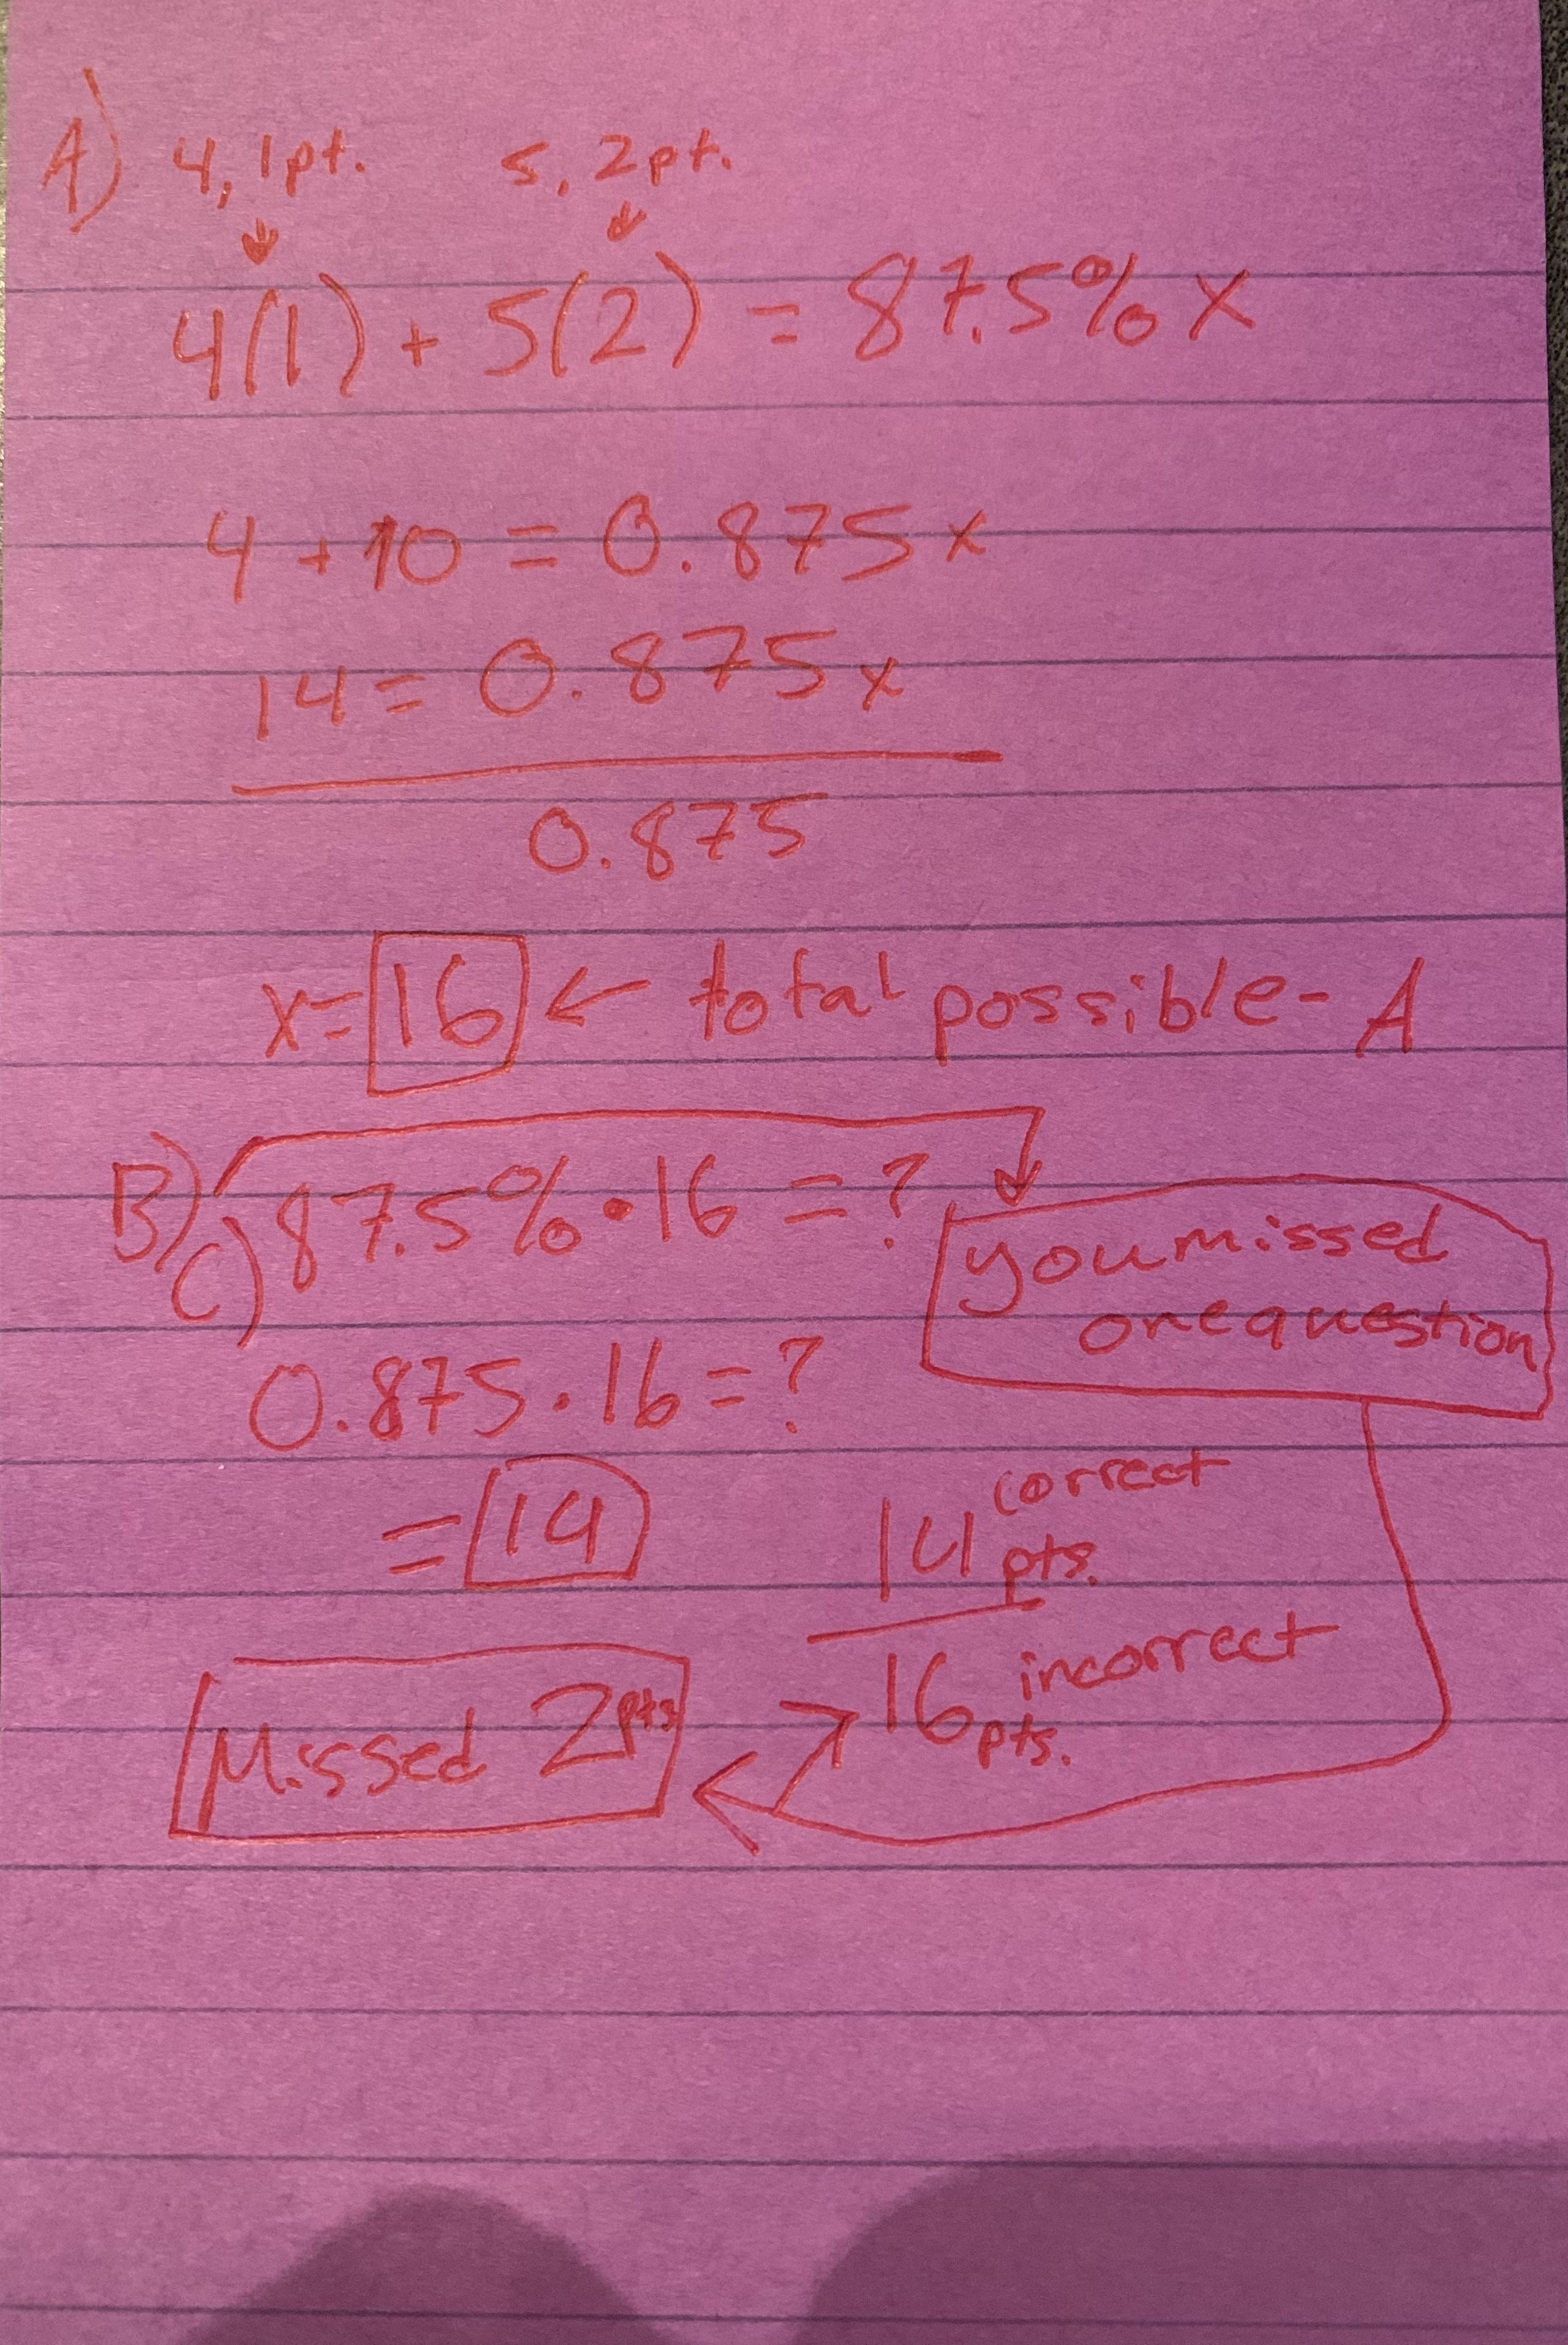 A) 4, 1pt. 5, 2pt.
4(1) + 5(2) = 87.5% x
4 + 10 = 0.875x
14 = 0.875x
0.875
x = 16 ← total possible - A
B) C) 87.5% • 16 = ?
you missed
one question
0.875 • 16 = ?
= 14
14 correct pts.
16 incorrect pts.
Missed 2 pts